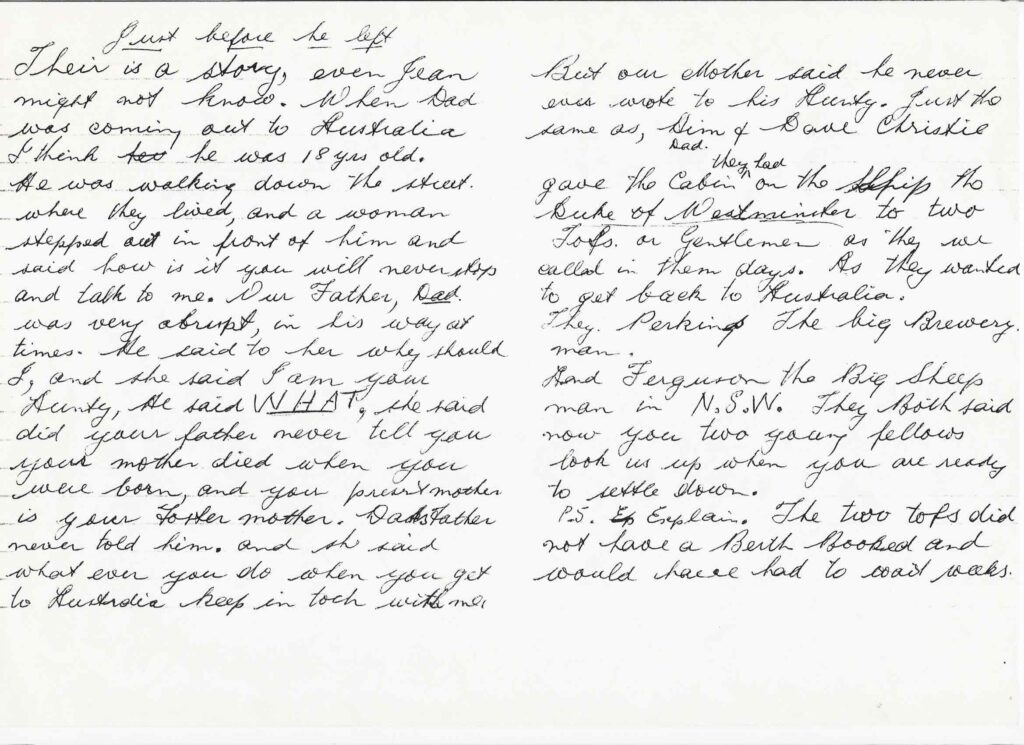 Just before he left
Their is a story, even Jean
might not know. When Dad
was coming out to Australia
I think he was 18 yrs old.
He was walking down the street.
where they lived, and a woman
stepped out in front of him and
said how is it you will never stop
and talk to me. Our Father, Dad.
was very abrupt, in his way at
times. He said to her whey should
I, and she said I am your
Aunty, He said WHAT, she said
did your father never tell you
your mother died when you
were born, and you presnt mother
is your Foster mother. Dads Father
never told him. and sh said
what ever you do when you get
to Australia keep in toch with me.
But our Mother said he never
ever wrote to his Aunty. Just the
same as, Dim & Dave Christie
Dad.
they had
gave the Cabin on the Ship the
Duke of Westminster to two
Tofs. or Gentlemen as they we
called in them days. As they wanted
to get back to Australia.
They. Perkins The big Brewery.
man.
And Ferguson the Big Sheep
man in N.S.W. They Both said
now you two young fellows
look us up when you are ready
to settle down.
P.S. Explain. The two tofs did
not have a Berth Booked and
would have had to wait weeks.